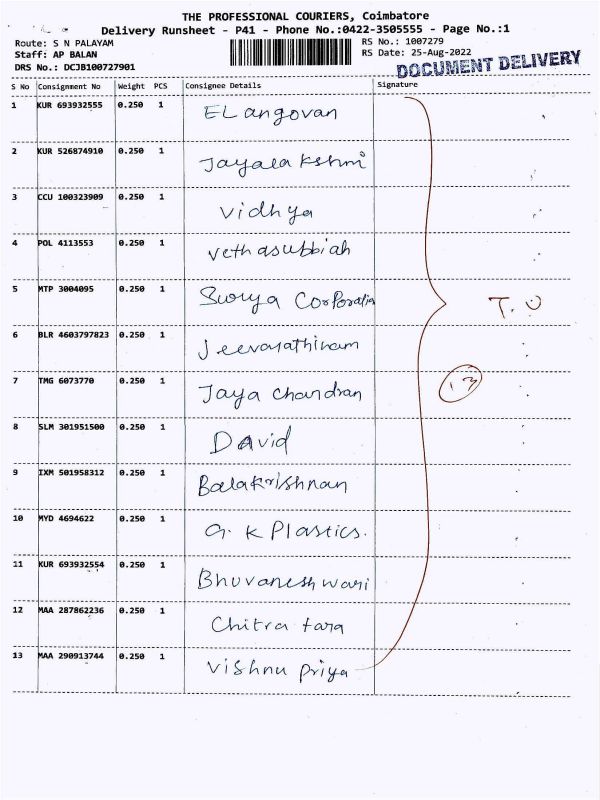 THE PROFESSIONAL COURIERS, Coimbatore
Delivery Runsheet - P41 - Phone No.:0422-3505555 - Page No.:1
Route: S N PALAYAM
Staff: AP BALAN
DRS No.: DCJB100727901
RS No.: 1007279
RS Date: 25-Aug-2022
DOCUMENT DELIVERY
S No Consignment No Weight PCS Consignee Details Signature
1 KUR 693932555 0.250 1 ELangovan
2 KUR 526874910 0.250 1 Jayalakshmi
3 CCU 100323909 0.250 1 Vidhya
4 POL 4113553 0.250 1 Vethasubbiah
5 MTP 3004095 0.250 1 Surya Corporatio
T.O
6 BLR 4603797823 0.250 1 Jeevarathinam
7 TMG 6073770 0.250 1 Jaya chandran
13
8 SLM 301951500 0.250 1 David
9 IXM 501958312 0.250 1 Balakrishnan
10 MYD 4694622 0.250 1 G. K Plastics.
11 KUR 693932554 0.250 1 Bhuvaneshwari
12 MAA 287862236 0.250 1 Chitra tara
13 MAA 290913744 0.250 1 Vishnu Priya